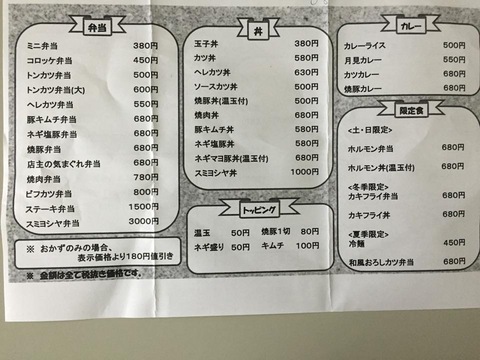 弁当
ミニ弁当 380円
コロッケ弁当 450円
トンカツ弁当 500円
トンカツ弁当(大) 600円
ヘレカツ弁当 550円
豚キムチ弁当 680円
ネギ塩豚弁当 680円
焼豚弁当 680円
店主の気まぐれ弁当 680円
焼肉弁当 780円
ビフカツ弁当 800円
ステーキ弁当 1500円
スミヨシヤ弁当 3000円
※ おかずのみの場合、
表示価格より180円値引き
※ 金額は全て税抜き価格です。
丼
玉子丼 380円
カツ丼 580円
ヘレカツ丼 630円
ソースカツ丼 500円
焼豚丼(温玉付) 500円
焼肉丼 680円
豚キムチ丼 580円
ネギ塩豚丼 580円
ネギマヨ豚丼(温玉付) 680円
スミヨシヤ丼 1000円
トッピング
温玉 50円 焼豚1切 80円
ネギ盛り 50円 キムチ 100円
カレー
カレーライス 500円
月見カレー 550円
カツカレー 680円
焼豚カレー 680円
限定食
<土・日限定>
ホルモン弁当 680円
ホルモン丼(温玉付) 680円
<冬季限定>
カキフライ弁当 680円
カキフライ丼 680円
<夏季限定>
冷麺 450円
和風おろしカツ弁当 680円